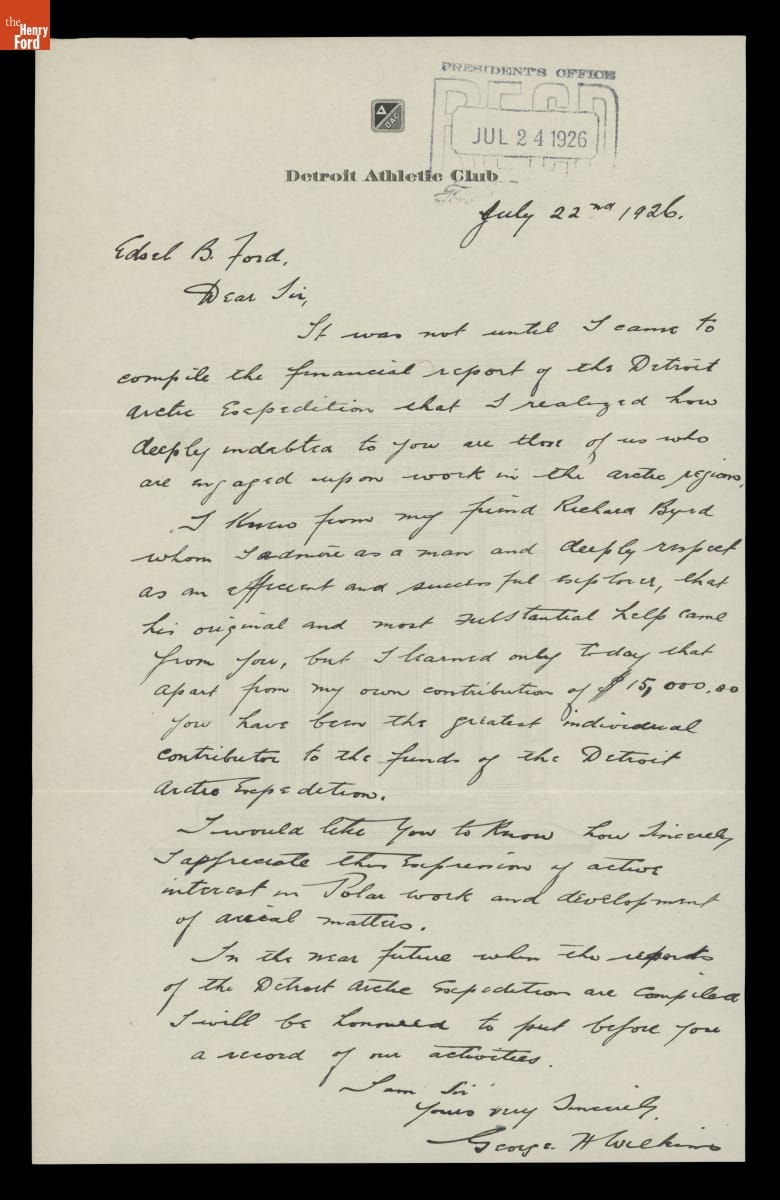 the
Henry
Ford
PRESIDENT'S OFFICE
RECD
JUL 24 1926
DAC
Detroit Athletic Club
July 22nd 1926.
Edsel B. Ford,
Dear Sir,
It was not until I came to
compile the financial report of the Detroit
Arctic Expedition that I realized how
deeply indebted to you are those of us who
are engaged upon work in the arctic regions.
I know from my friend Richard Byrd
whom I admire as a man and deeply respect
as an efficient and successful explorer, that
his original and most substantial help came
from you, but I learned only today that
apart from my own contribution of $15,000.00
you have been the greatest individual
contributor to the funds of the Detroit
Arctic Expedition.
I would like you to know how sincerely
I appreciate this expression of active
interest in Polar work and development
of aerial matters.
In the near future when the reports
of the Detroit Arctic Expedition are compiled
I will be honoured to put before you
a record of our activities.
I am Sir
Yours very sincerely,
George H Wilkins